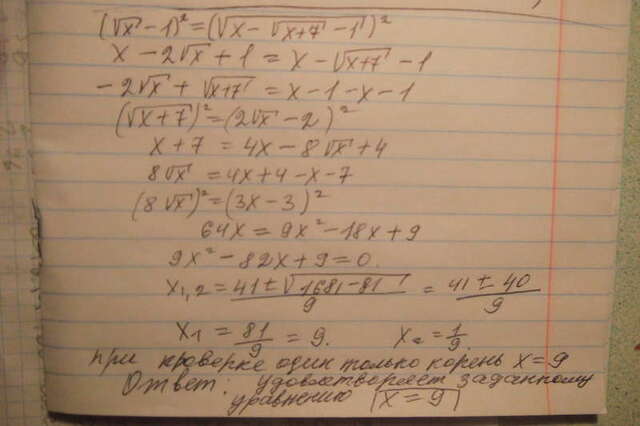 (√x - 1)² = (√x - √x+7 - 1)²
x - 2√x + 1 = x - √x+7 - 1
-2√x + √x+7 = x - 1 - x - 1
(√x+7)² = (2√x - 2)²
x + 7 = 4x - 8√x + 4
8√x = 4x + 4 - x - 7
(8√x)² = (3x - 3)²
64x = 9x² - 18x + 9
9x² - 82x + 9 = 0.
x₁,₂ = 41 ± √1681 - 81 / 9 = 41 ± 40 / 9
x₁ = 81/9 = 9. x₂ = 1/9.
при проверке один только корень x = 9
Ответ: удовлетворяет заданному
уравнению x = 9